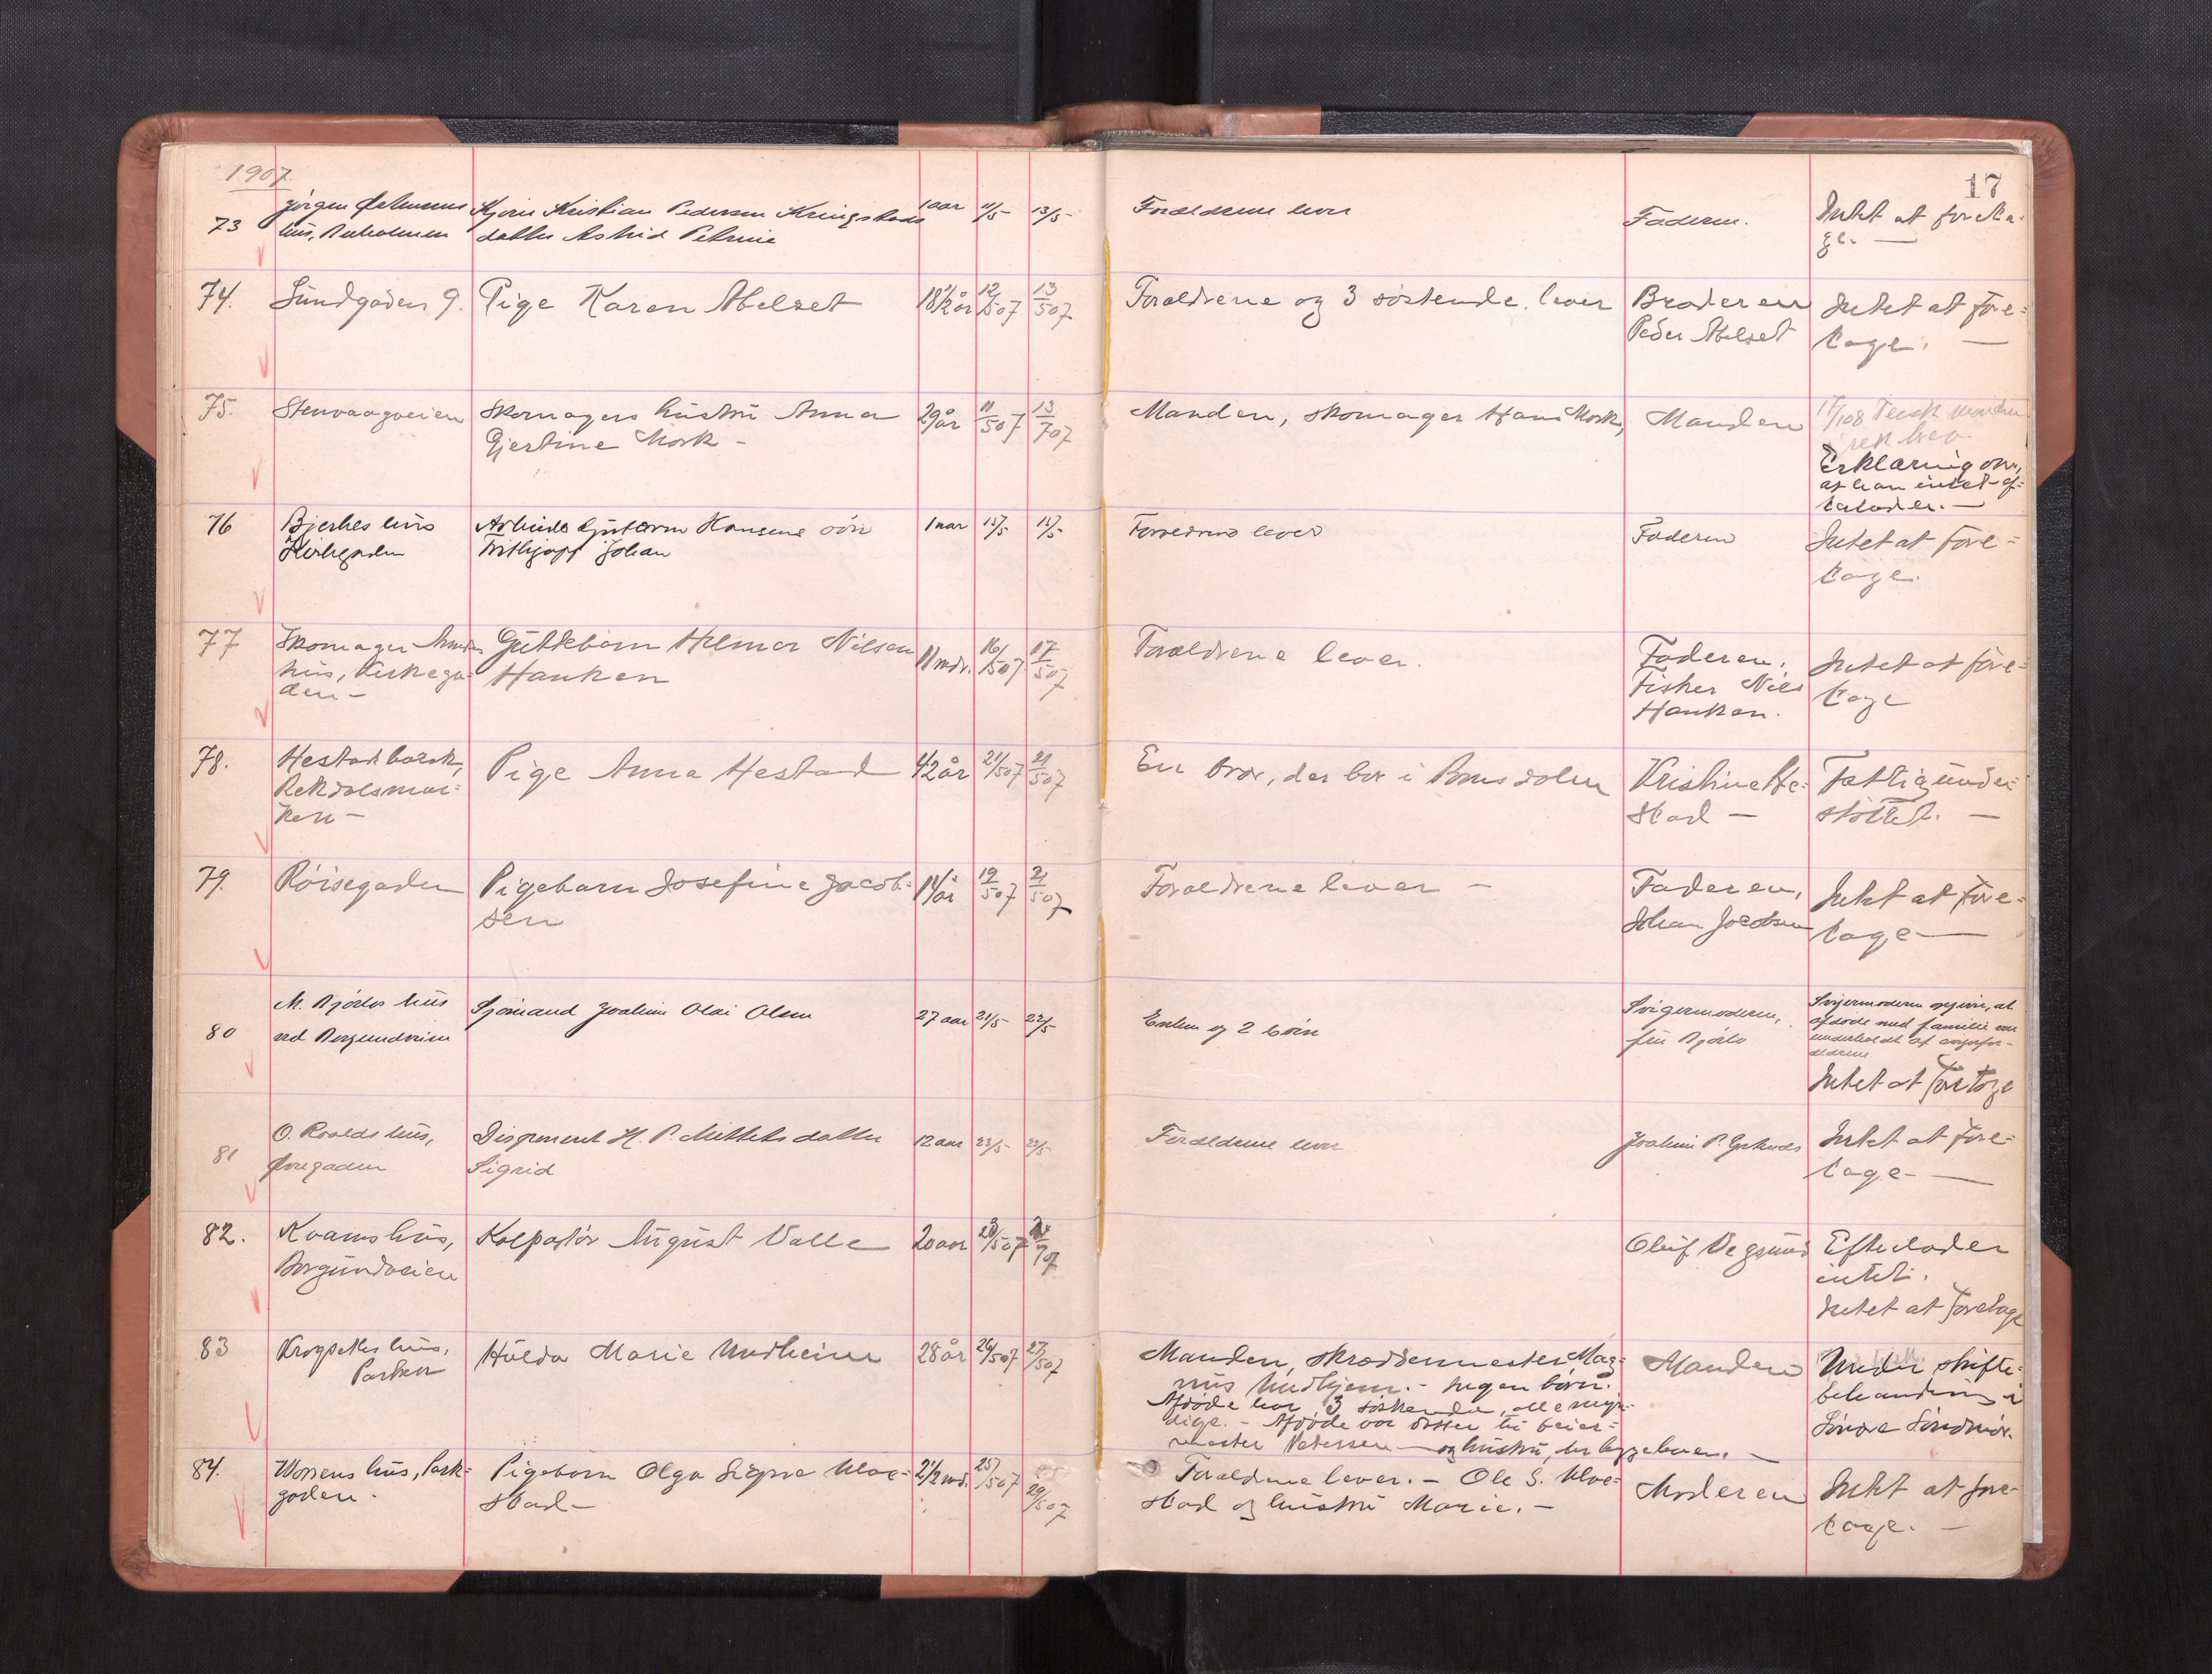 1907
17
73
Jörgen
hus,
Kjörer Kristian Pedersen Kringstads
datter Astrid Petrine
1 aar
11/5
13/5
Forældrene lever
Faderen.
Intet at foreta-
ge. —
74.
Sundgaden 9.
Pige Karen Abelset
18 1/2 år
12/507
13/507
Forældrene og 3 söskende lever
Broderen
Peder Abelset
Intet at fore=
tage. —
75.
Stenvaagveien
Skomagers hustru Anna
Gjertine Mork -
29 år
11/507
13/707
Manden, skomager Hans Mork,
Manden
17/108
Erklæring om,
at han intet ef=
terlader. —
76
Bjerkes hus
Kirkegaden
Arbeider Guttorm Hansens sön
Frithjof Johan
1 aar
15/5
15/5
Forældrene lever
Faderen
Intet at fore=
tage.
77
Skomager
hus, Kirkega-
den -
Guttebarn Helmer Nilsen
Hanken
11 mdr.
16/507
17/507
Forældrene lever.
Faderen,
Fisker Nils
Hanken.
Intet at fore=
tage
78.
Hestad barak,
Rekdalsmar=
ken -
Pige Anna Hestad
42 år
21/507
21/507
En bror, der bor i Romsdalen
Kristine He=
stad —
Fattigunder=
støttet. —
79.
Röisegaden
Pigebarn Josefine Jacob=
sen
14 år
19/507
21/507
Forældrene lever -
Faderen,
Johan Jacobsen
Intet at fore=
tage —
80
M. Bjørlos hus
ved Borgundveien
Sjömand Joakim Olai Olsen
27 aar
21/5
22/5
Enken og 2 börn
Svigermoderen,
fru Bjørlo
Svigermoderen opgiver, at
afdöde med familie var
underholdt af svigerfor-
ældrene.
Intet at foretage
81
O. Roalds hus,
Øvregaden
Disponent H. P. datter
Sigrid
12 aar
23/5
23/5
Forældrene lever
Joakim P.
Intet at fore=
tage — —
82.
Kvams hus,
Borgundveien
Kolportör August Valle
20 aar
23/507
Oluf Vegsund
Efterlader
intet.
Intet at foretage
83
hus,
Parken
Hulda Marie Undheim
28 år
26/507
27/507
Manden, skreddermester Mag=
nus Undhjem. - Ingen börn.
Afdöde har 3 söskende, alle myn=
dige. - Afdöde var datter til
mester Petersen — og hustru,
Manden
Under skifte-
behandling i
Söndre Söndmör.
84.
hus, Park=
gaden.
Pigebarn Olga Signe
stad -
2 1/2 md.
25/507
29/507
Forældrene lever. - Ole S.
stad og hustru Marie. -
Moderen
Intet at fore-
tage. —